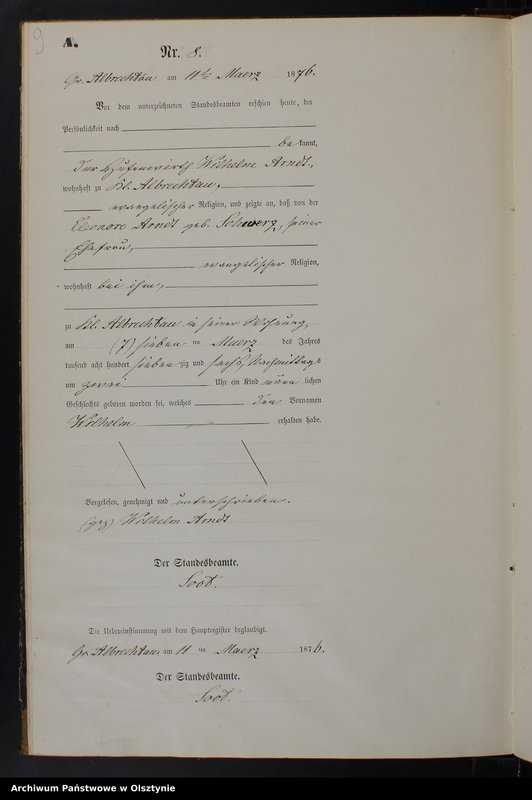 9
A.
Nr. 8.
Gr. Albrechtau am 11 ten Maerz 1876.
Vor dem unterzeichneten Standesbeamten erschien heute, der
Persönlichkeit nach
be kannt,
der Wilhelm Arndt,
wohnhaft zu Kl. Albrechtau,
evangelischer Religion, und zeigte an, daß von der
Eleonore Arndt geb. Schwarz, seiner
Ehefrau,
evangelischer Religion,
wohnhaft bei ihm,
zu Kl. Albrechtau in seiner Wohnung,
am (7) sieben ten Maerz des Jahres
tausend acht hundert sieben zig und sechs, Nachmittags
um zwei Uhr ein Kind männ lichen
Geschlechts geboren worden sei, welches den Vornamen
Wilhelm erhalten habe.
Vorgelesen, genehmigt und unterschrieben.
(gez) Wilhelm Arndt
Der Standesbeamte.
Die Uebereinstimmung mit dem Hauptregister beglaubigt.
Gr. Albrechtau, am 11 ten Maerz 1876.
Der Standesbeamte.
Archiwum Państwowe w Olsztynie